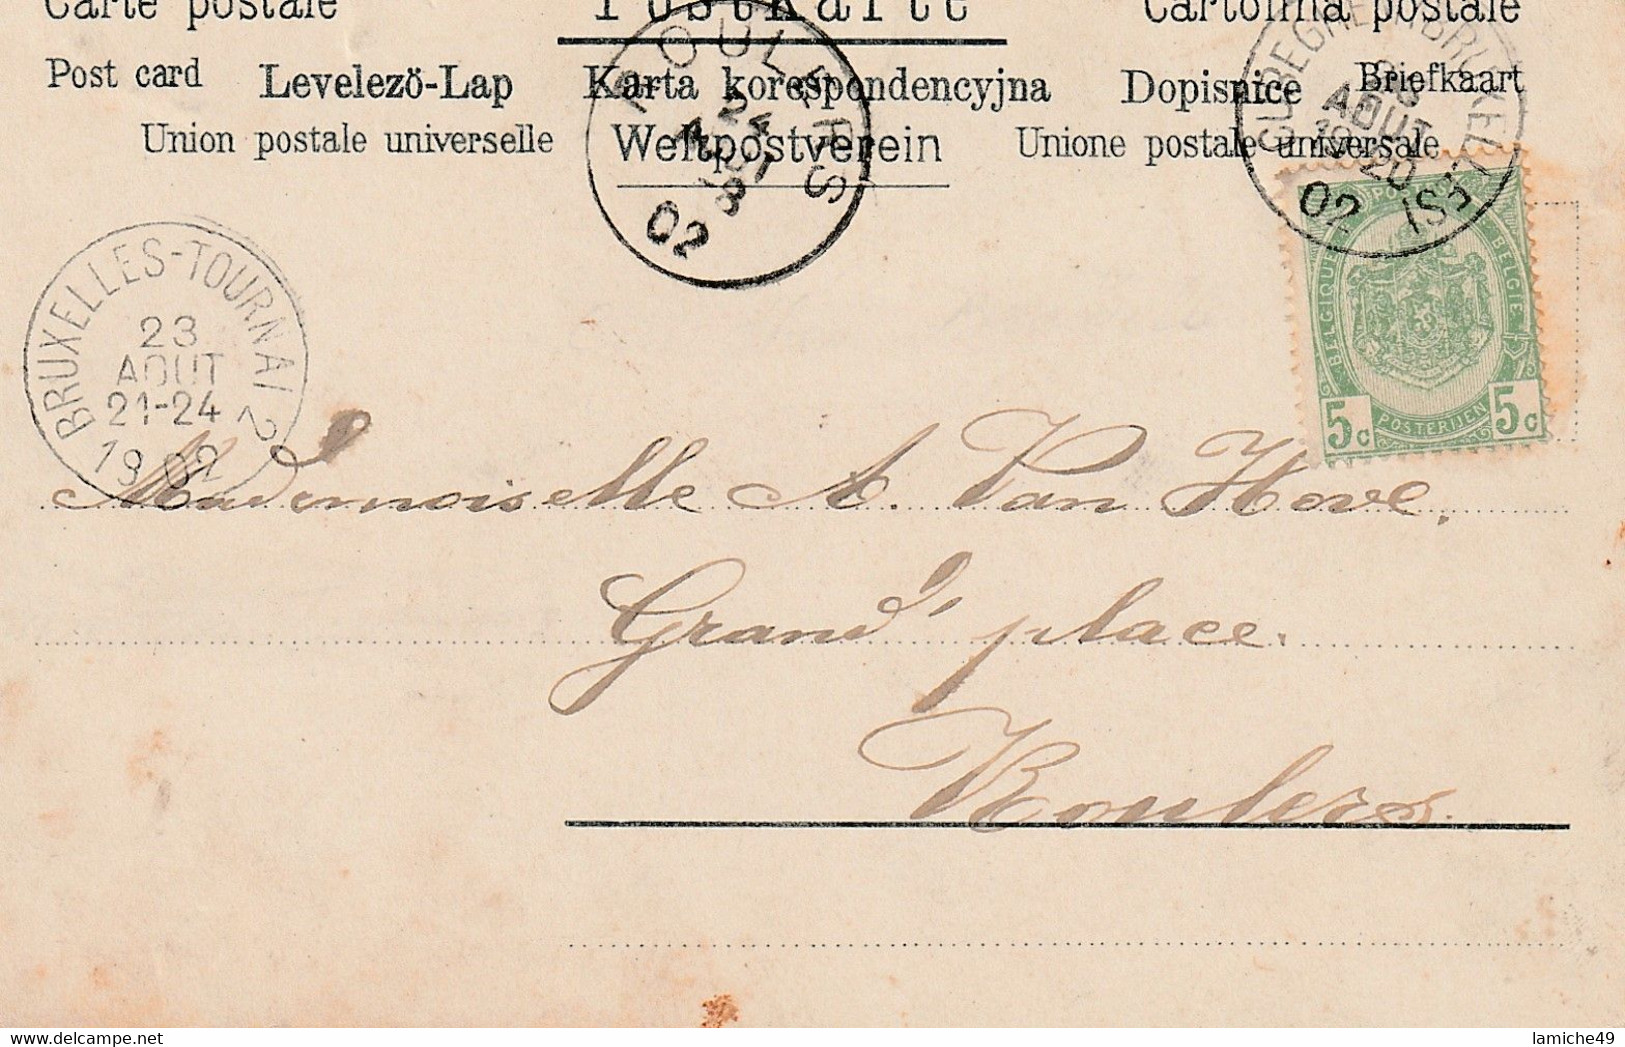 Carte postale Postkarte Cartolina postale
Post card Levelezö-Lap Karta korespondencyjna Dopisnice Briefkaart
Union postale universelle Weltpostverein Unione postale universale
ROULERS
24
AOUT
8
02
23
AOUT
19-20
02
BRUXELLES-TOURNAI 2
23
AOUT
21-24
1902
BELGIQUE POSTES BELGIE
5c POSTERIJEN 5c
Mademoiselle A. Van Hove.
Grand' place.
Roulers.
lamiche49